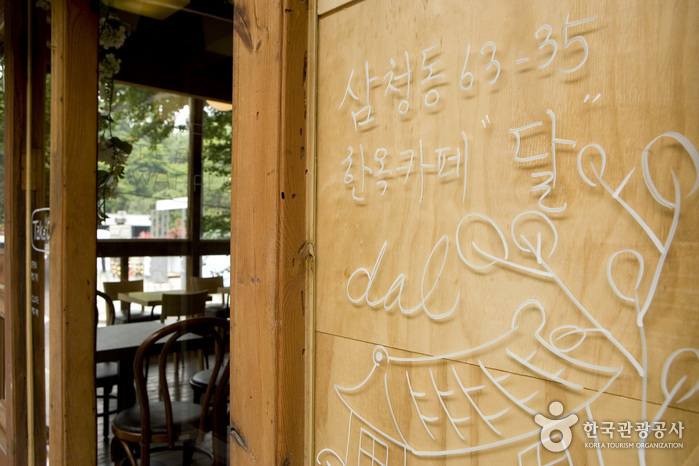 삼청동 63-35
한옥카페 "달"
dal
한국관광공사
KOREA TOURISM ORGANIZATION